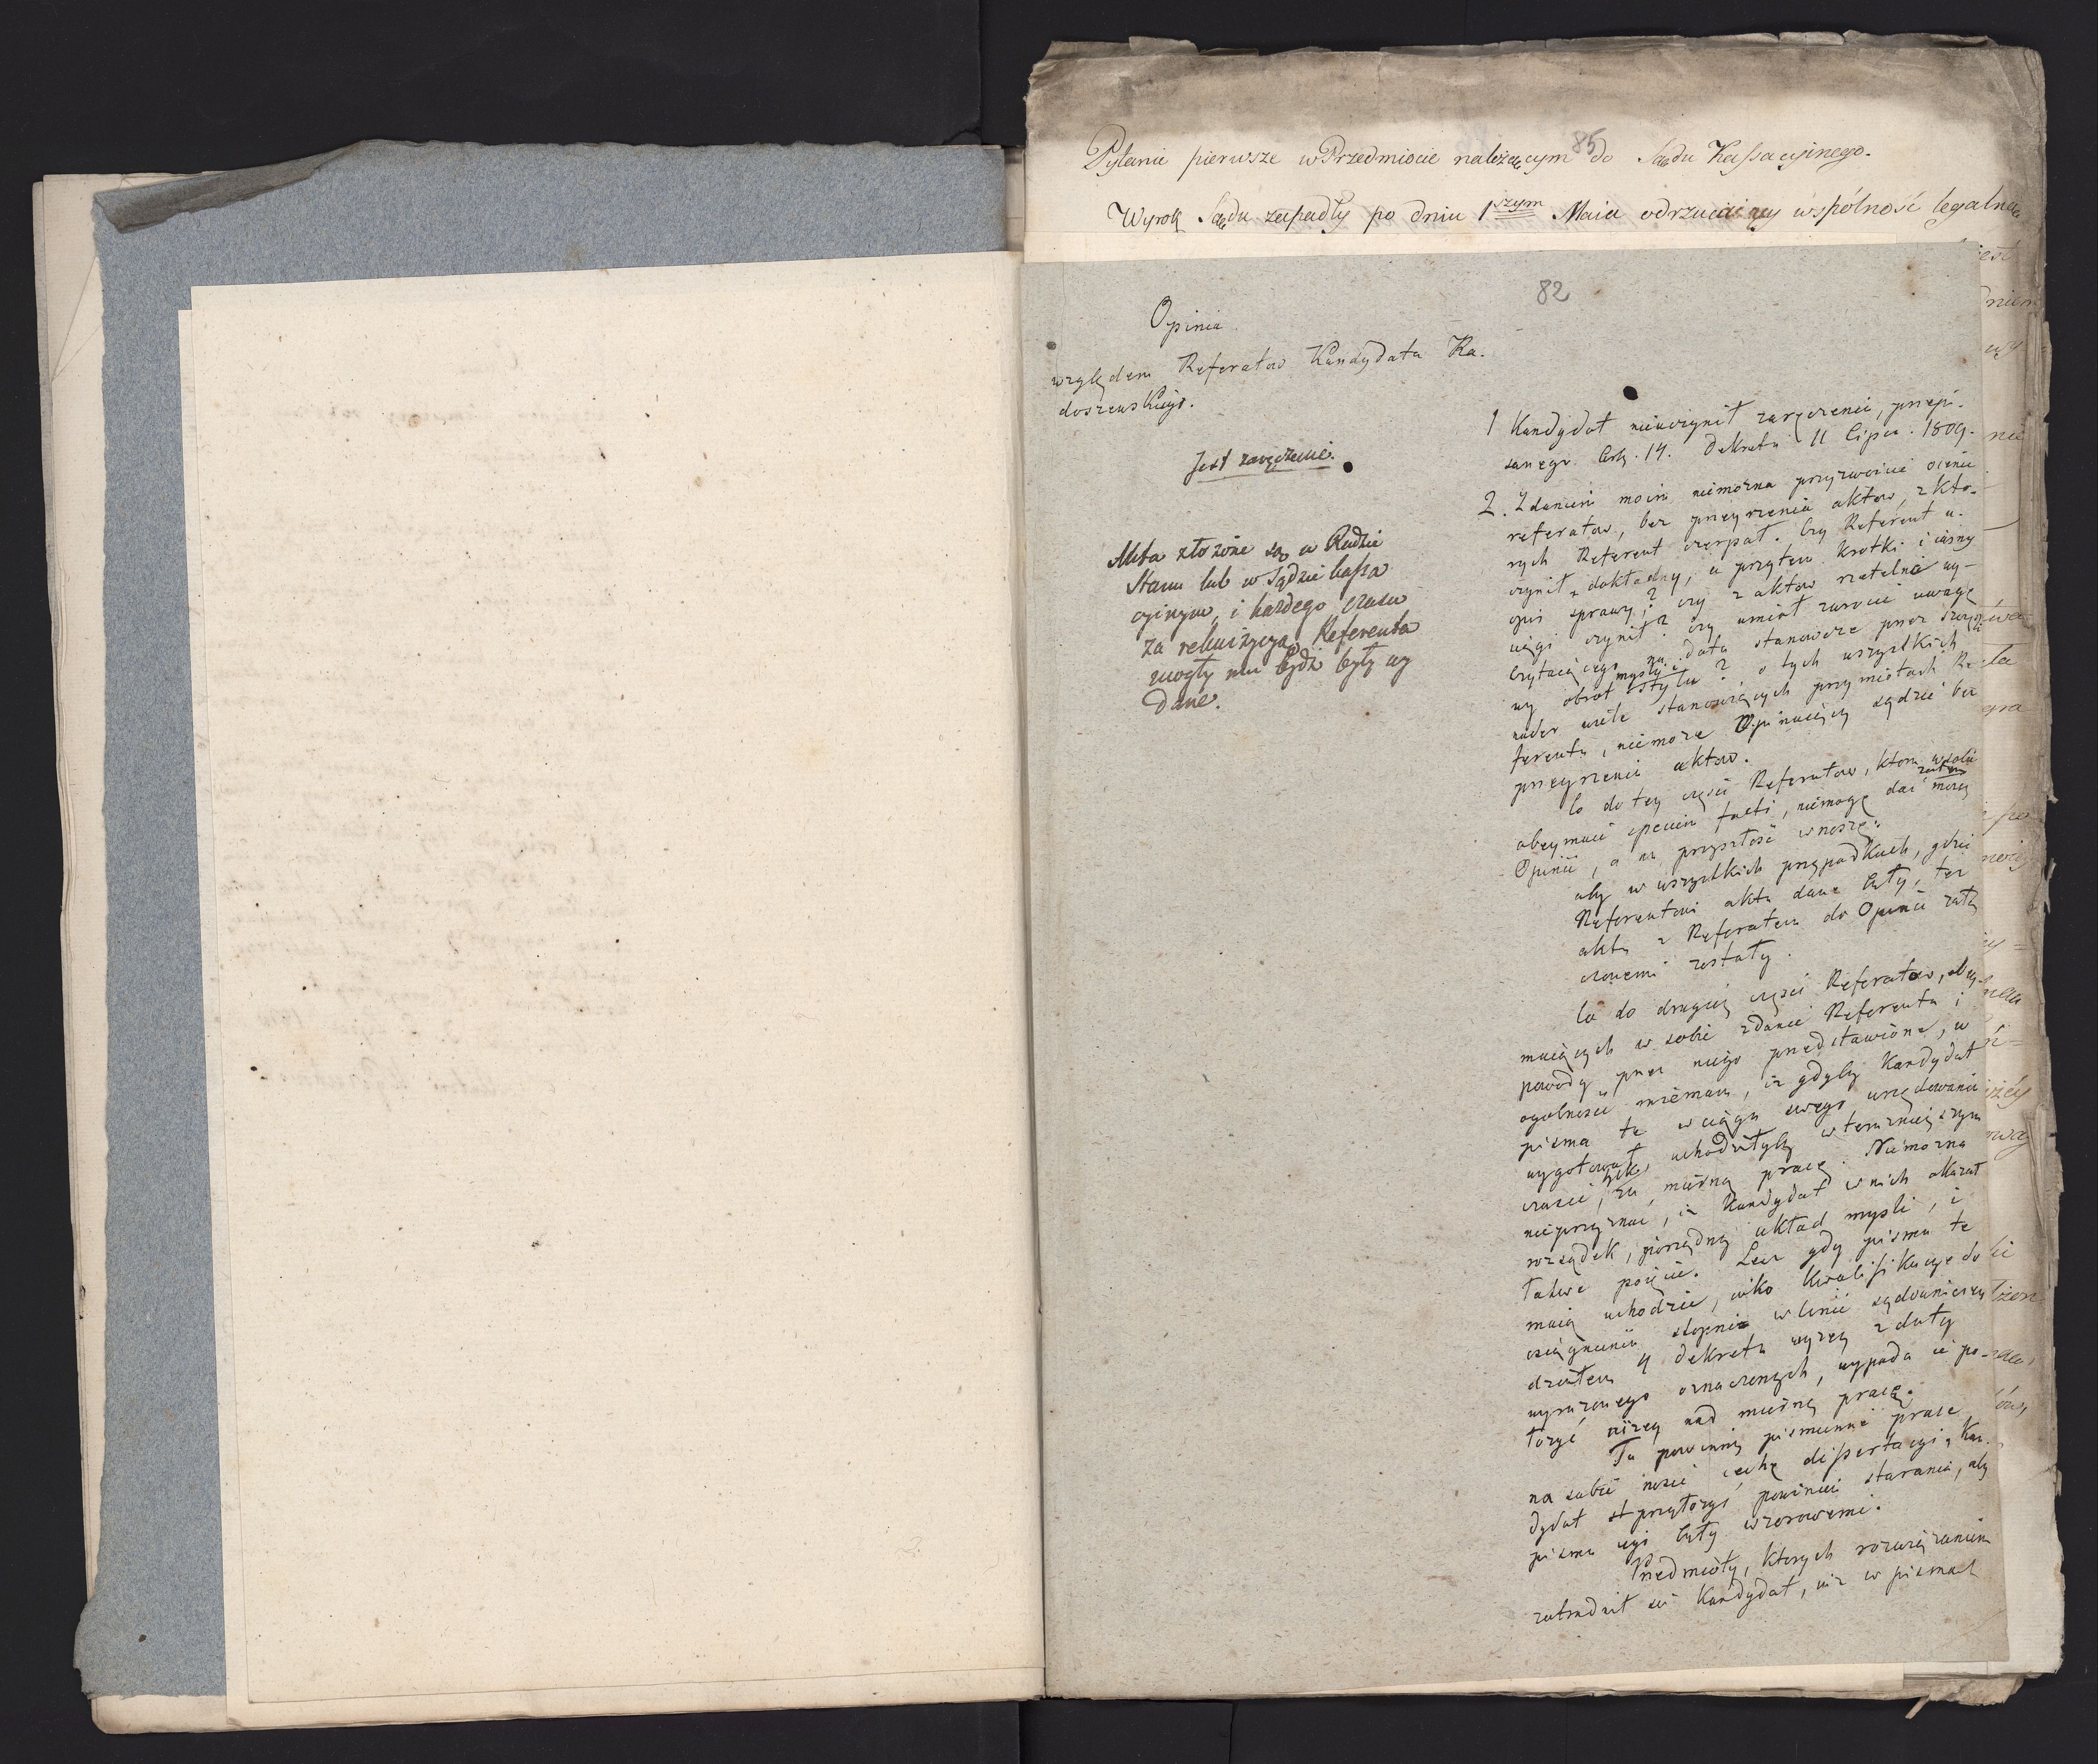 85
Pytanie pierwsze w Przedmiocie należącym do Sądu Kassacyinego.
Wyrok Sądu zapadły po dniu 1szym Maia odrzucaiący wspólność legalną
82
Opinia
względem Referatow Kandydata Ka-
doszewskiego.
Jest zaręczenie.
Akta złożone są w Radzie
Stanu lub w Sądzie Kassa
cyinym, i każdego czasu
za rekwizycyą Referenta
mogły mu bydź były wy
dane.
1 Kandydat nieuczynił zaręczenia, przepi-
sanego Art. 14. Dekretu 11 Lipca 1809.
2. Zdaniem moim niemożna przyzwoicie ocenić
referatow, bez przeyrzenia aktow, z kto-
rych Referent czerpał. Czy Referent u-
czynił dokładny, a przytem krotki i iasny
opis sprawy? czy z aktow rzetelne wy-
ciągi czynił? czy umiał zwrocić uwagę
czytaiącego na data stanowcze przez szczęśli
wy obrot myśli i stylu? o tych wszystkich
nader wiele stanowiących przymiotach Re-
ferenta, niemoże Opiniuiący sądzić bez
przeyrzenia aktow.
Co do tey części Referatow, ktora w sobie
obeymuie speciem facti, niemogę dać zatem moiey
Opinii, a na przyszłość wnoszę:
aby w wszystkich przypadkach, gdzie
Referentowi akta dane były, też
akta z Referatem do Opinii załą
czonemi zostały.
Co do drugiey części Referatow, obey-
muiących w sobie zdanie Referenta i
powody przez niego przedstawione, w
ogolności mniemam, iż gdyby Kandydat
pisma te w ciągu swego urzędowania
wygotował, uchodziłyby w teraznieyszym
czasie, tylko za mierną pracę. Niemożna
nieprzyznać, iż Kandydat w nich okazał
rozsądek, porządny układ myśli, i
łatwe poięcie. Lecz gdy pisma te
maią uchodzić, iako kwalifikacye do
osiągnienia stopnia w linii sądowniczey
działem 4 dekretu wyżey z daty
wyrażonego oznaczonych, wypada ie po-
łożyć niżey nad mierną pracę.
Tu powinny pismienne prace
na sobie nosić cechę dissertacyi, Kan-
dydat przyłożyć powinien starania, aby
pisma iego były wzorowemi.
Przedmioty, ktorych rozwiązaniem
zatrudnił się Kandydat, nie w pismach